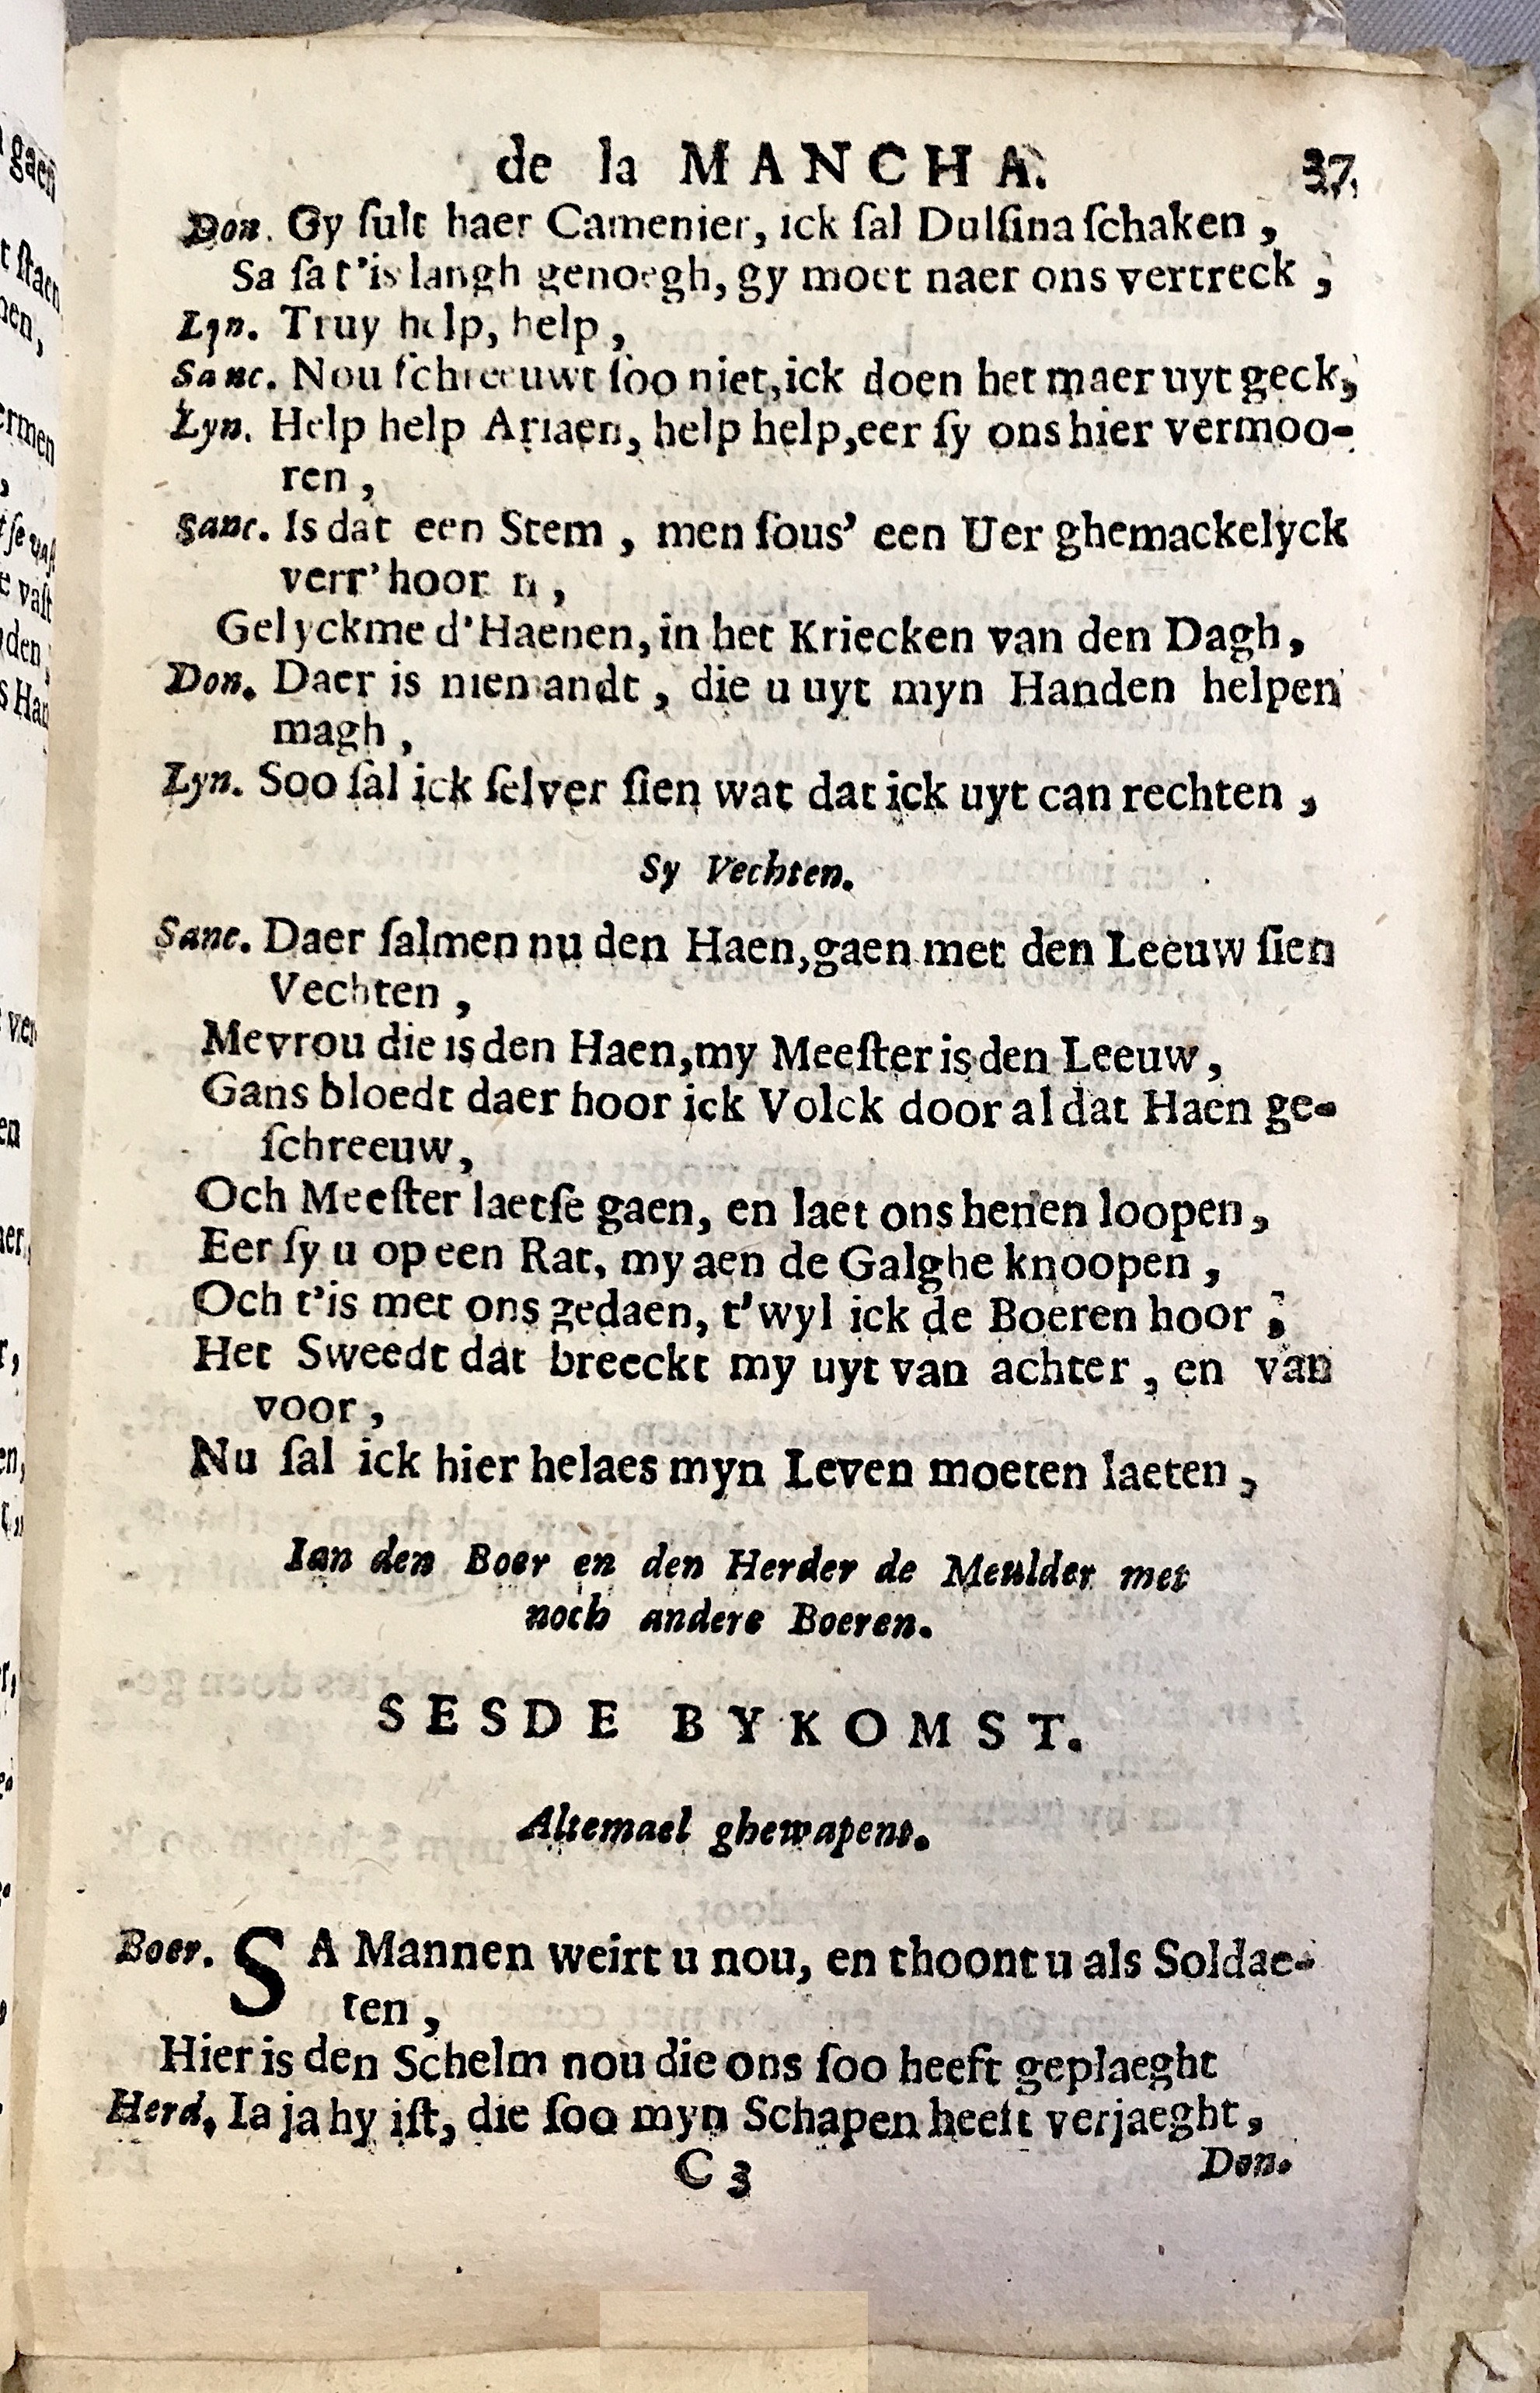 de la MANCHA. 37,
Don. Gy ſult haer Camenier, ick ſal Dulſina ſchaken,
Sa ſa t'is langh genoegh, gy moet naer ons vertreck,
Lyn. Truy help, help,
Sanc. Nou ſchreeuwt ſoo niet, ick doen het maer uyt geck,
Lyn. Help help Ariaen, help help, eer ſy ons hier vermoo-
ren,
Sanc. Is dat een Stem, men ſous' een Uer ghemackelyck
verr'hoor n,
Gelyckme d'Haenen, in het Kriecken van den Dagh,
Don. Daer is niemandt, die u uyt myn Handen helpen
magh,
Lyn. Soo ſal ick ſelver ſien wat dat ick uyt can rechten,
Sy Vechten.
Sanc. Daer ſalmen nu den Haen, gaen met den Leeuw ſien
Vechten,
Mevrou die is den Haen, my Meeſter is den Leeuw,
Gans bloedt daer hoor ick Volck door al dat Haen ge-
ſchreeuw,
Och Meeſter laetſe gaen, en laet ons henen loopen,
Eer ſy u op een Rat, my aen de Galghe knoopen,
Och t'is met ons gedaen, t'wyl ick de Boeren hoor;
Het Sweedt dat breeckt my uyt van achter, en van
voor,
Nu ſal ick hier helaes myn Leven moeten laeten,
Ian den Boer en den Herder de Meulder met
noch andere Boeren.
SESDE BYKOMST.
Altemael ghewapent.
Boer. SA Mannen weirt u nou, en thoont u als Soldae-
ten,
Hier is den Schelm nou die ons ſoo heeft geplaeght
Herd, Ia ja hy iſt, die ſoo myn Schapen heeft verjaeght,
C 3 Don.